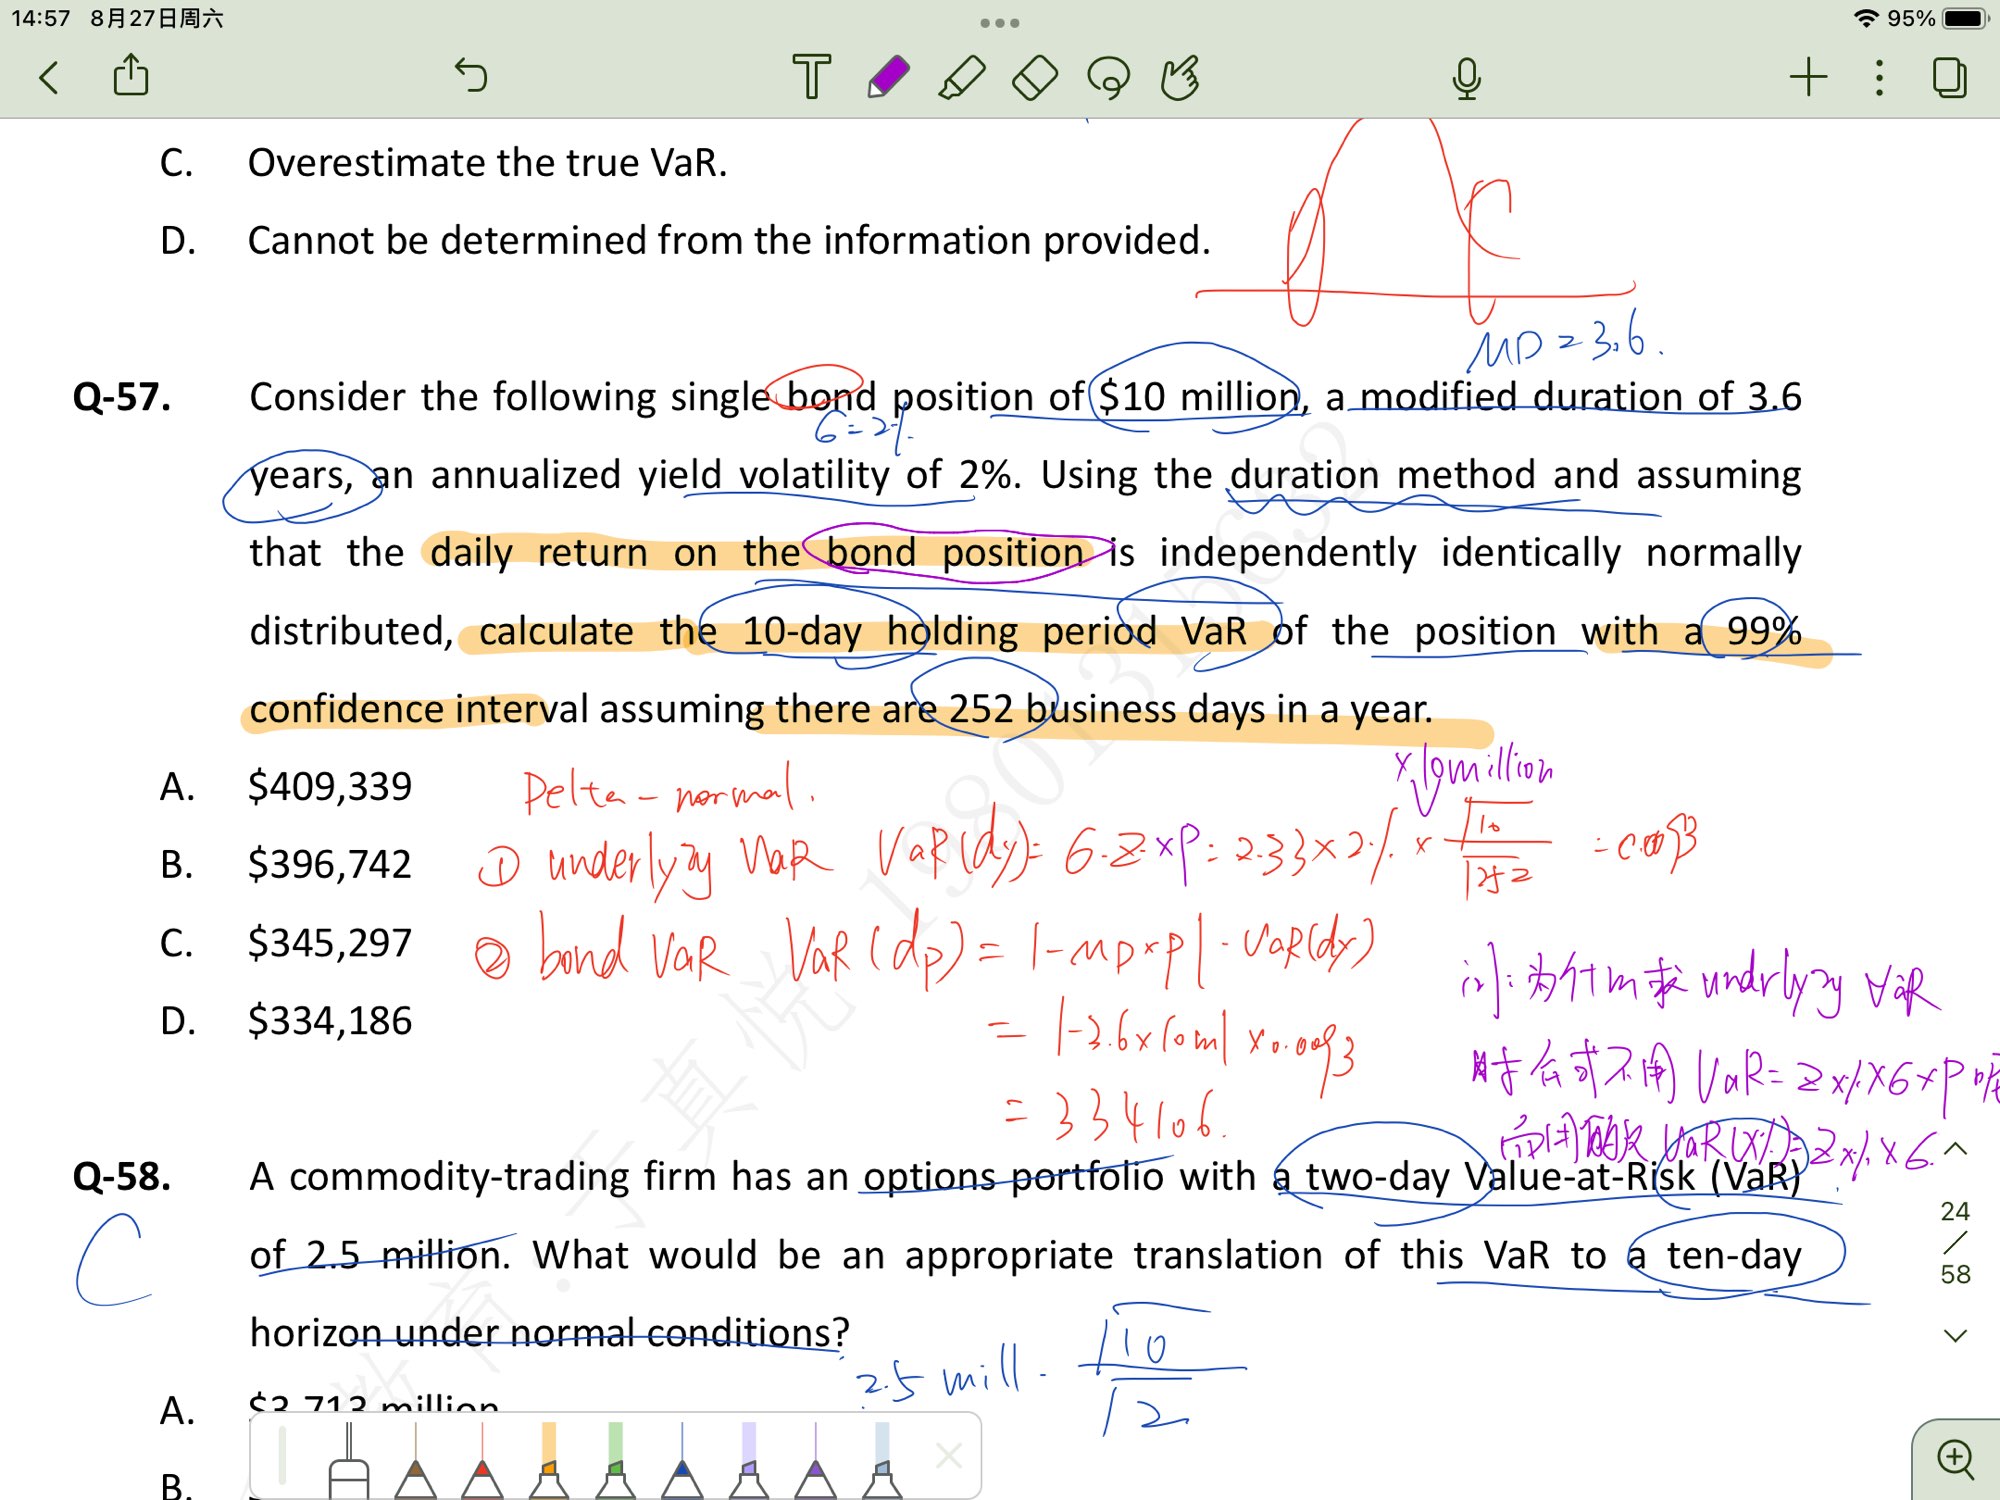 14:57 8月27日周六
95%
C. Overestimate the true VaR.
D. Cannot be determined from the information provided.
MD = 3.6.
Q-57. Consider the following single bond position of $10 million, a modified duration of 3.6
6=2%
years, an annualized yield volatility of 2%. Using the duration method and assuming
that the daily return on the bond position is independently identically normally
distributed, calculate the 10-day holding period VaR of the position with a 99%
confidence interval assuming there are 252 business days in a year.
x 10 million
A. $409,339
Delta-normal.
B. $396,742
① underlying VaR VaR(dy)= 6·Z×P = 2.33×2% × √10/√252 = 0.0093
C. $345,297
② bond VaR VaR(dp) = |-MD×P|·VaR(dy)
D. $334,186
= |-3.6×10m| ×0.0093
= 334106.
问:为什么求 underlying VaR
时公式不用 VaR= Z×%×6×P 呢
VaR(X%)= Z×%×6.
Q-58. A commodity-trading firm has an options portfolio with a two-day Value-at-Risk (VaR)
C
of 2.5 million. What would be an appropriate translation of this VaR to a ten-day
horizon under normal conditions?
2.5 mill · √10/√2
A. $3.713 million
B.
24
58
19801315632
于真悦